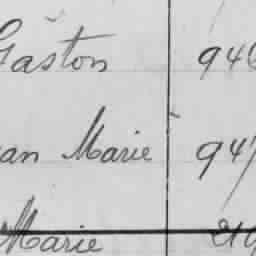 Gaston 946
an Marie 947
Marie